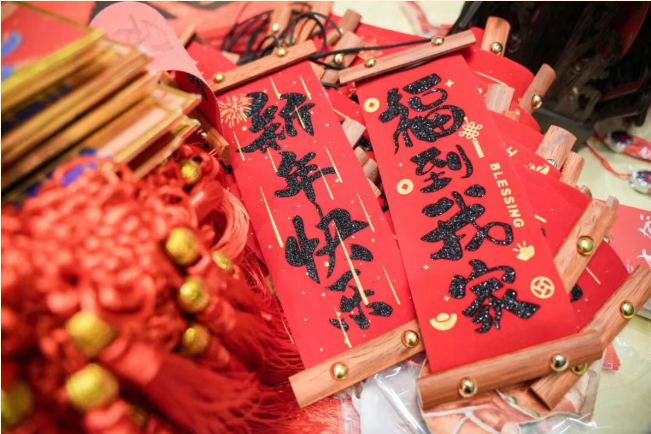 新年快乐
福到我家
BLESSING